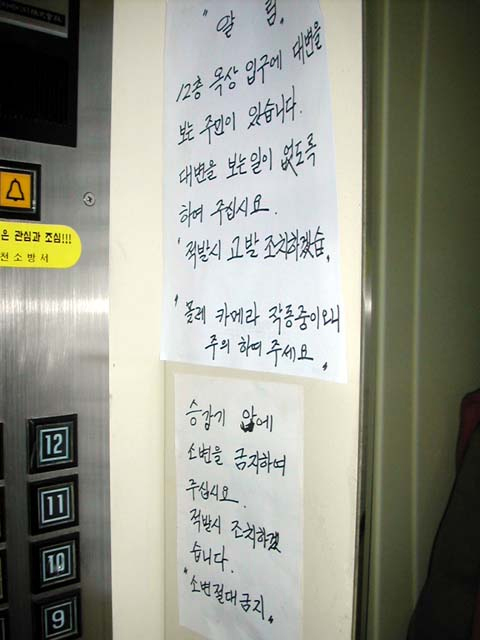 "알 림"
12층 옥상 입구에 대변을
보는 주민이 있습니다.
대변을 보는일이 없도록
하여 주십시요.
"적발시 고발 조치하겠슴"
"몰래 카메라 작동중이오니
주의 하여 주세요"
은 관심과 조심!!!
전소방서
승강기 앞에
소변을 금지하여
주십시요.
적발시 조치하겠
습니다.
"소변절대금지"
12
11
10
9